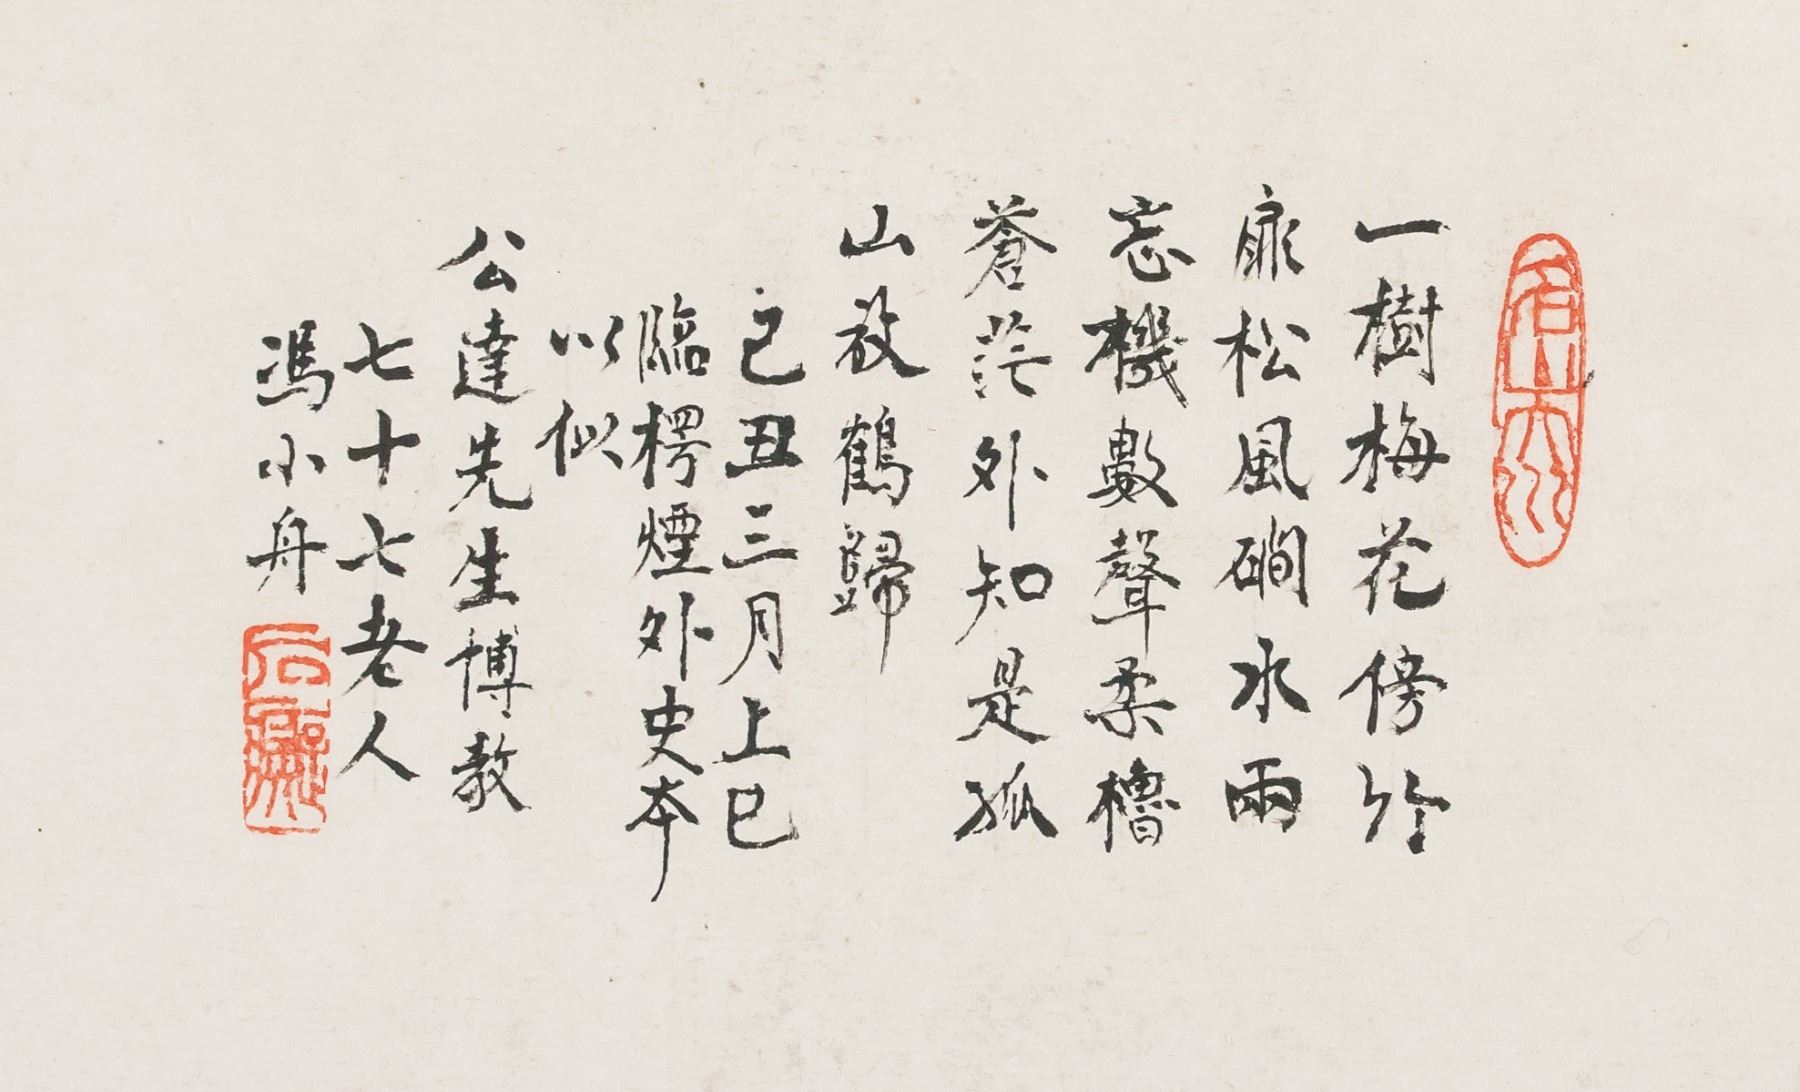 名山大川
一樹梅花傍竹
扉松風磵水雨
忘機數聲柔櫓
蒼茫外知是孤
山放鶴歸
己丑三月上巳
臨樗煙外史本
以似
公達先生博教
七十七老人
馮小舟